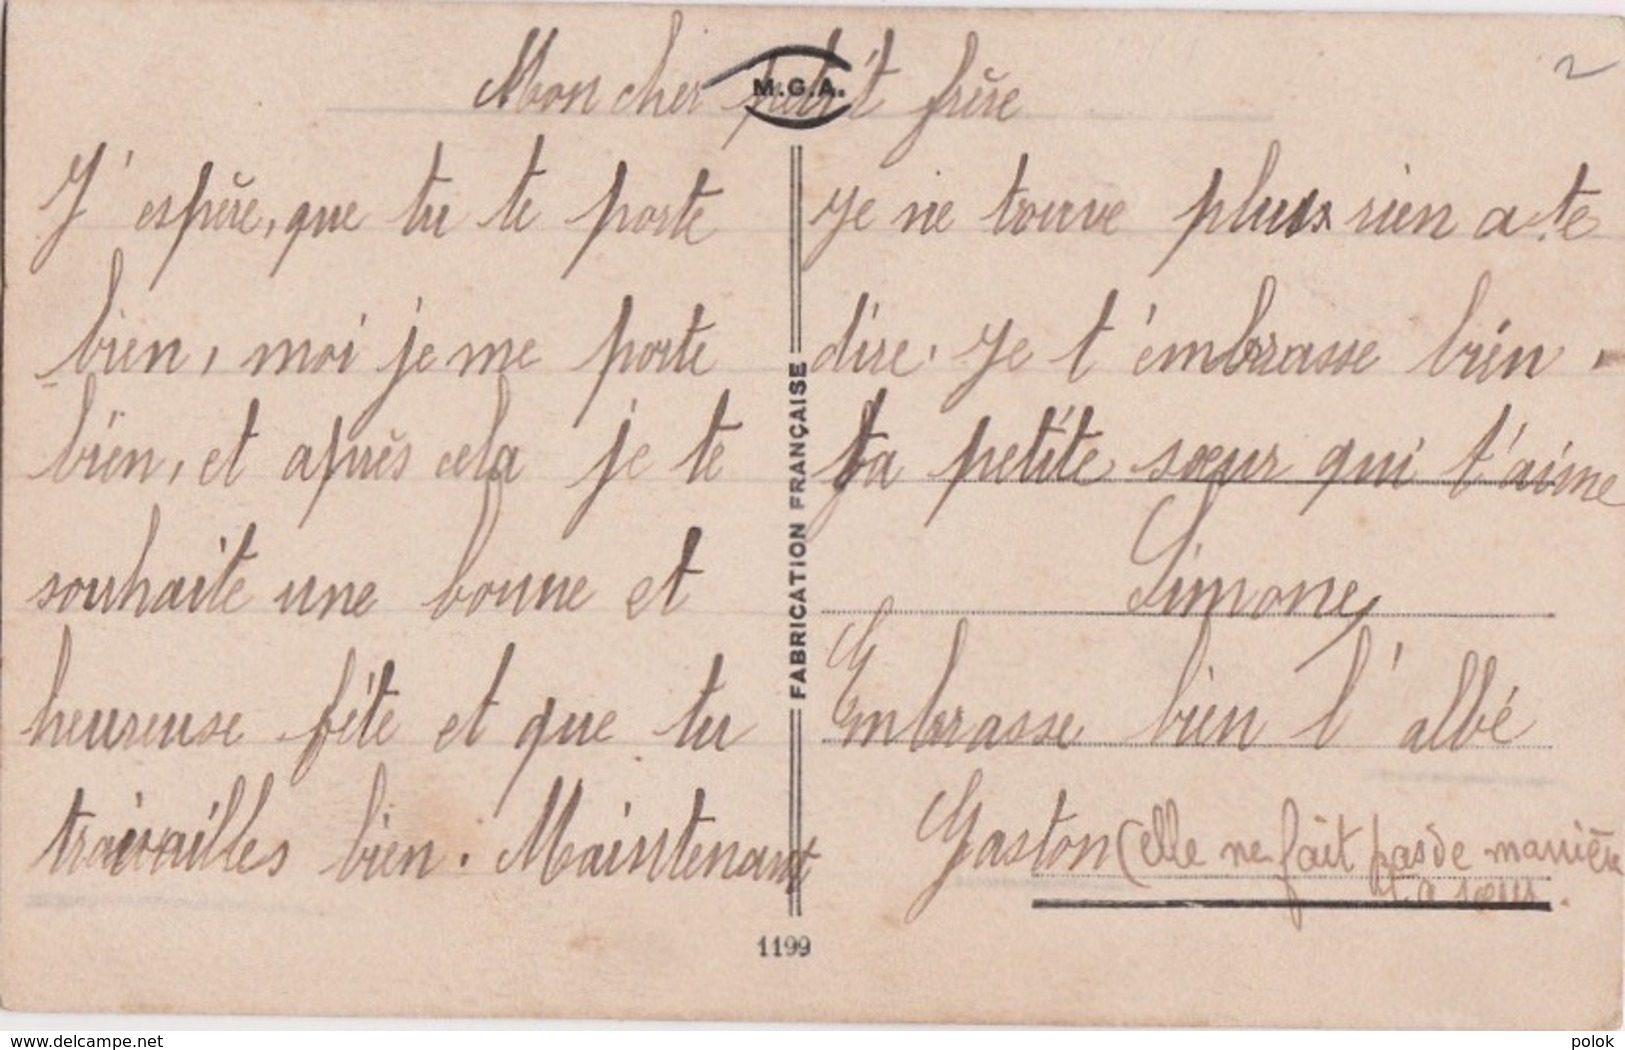 2
Mon cher petit frère
M.G.A.
J'espère, que tu te porte
bien, moi je me porte
bien, et après cela je te
souhaite une bonne et
heureuse fête et que tu
travailles bien. Maintenant
FABRICATION FRANÇAISE
1199
Je ne touve plus rien a te
dire. Je t'embrasse bien.
ta petite sœur qui t'aime
Simone
Embrasse bien l'abbé
Gaston (elle ne fait pas de manière
ta sœur.
www.delcampe.net
polok